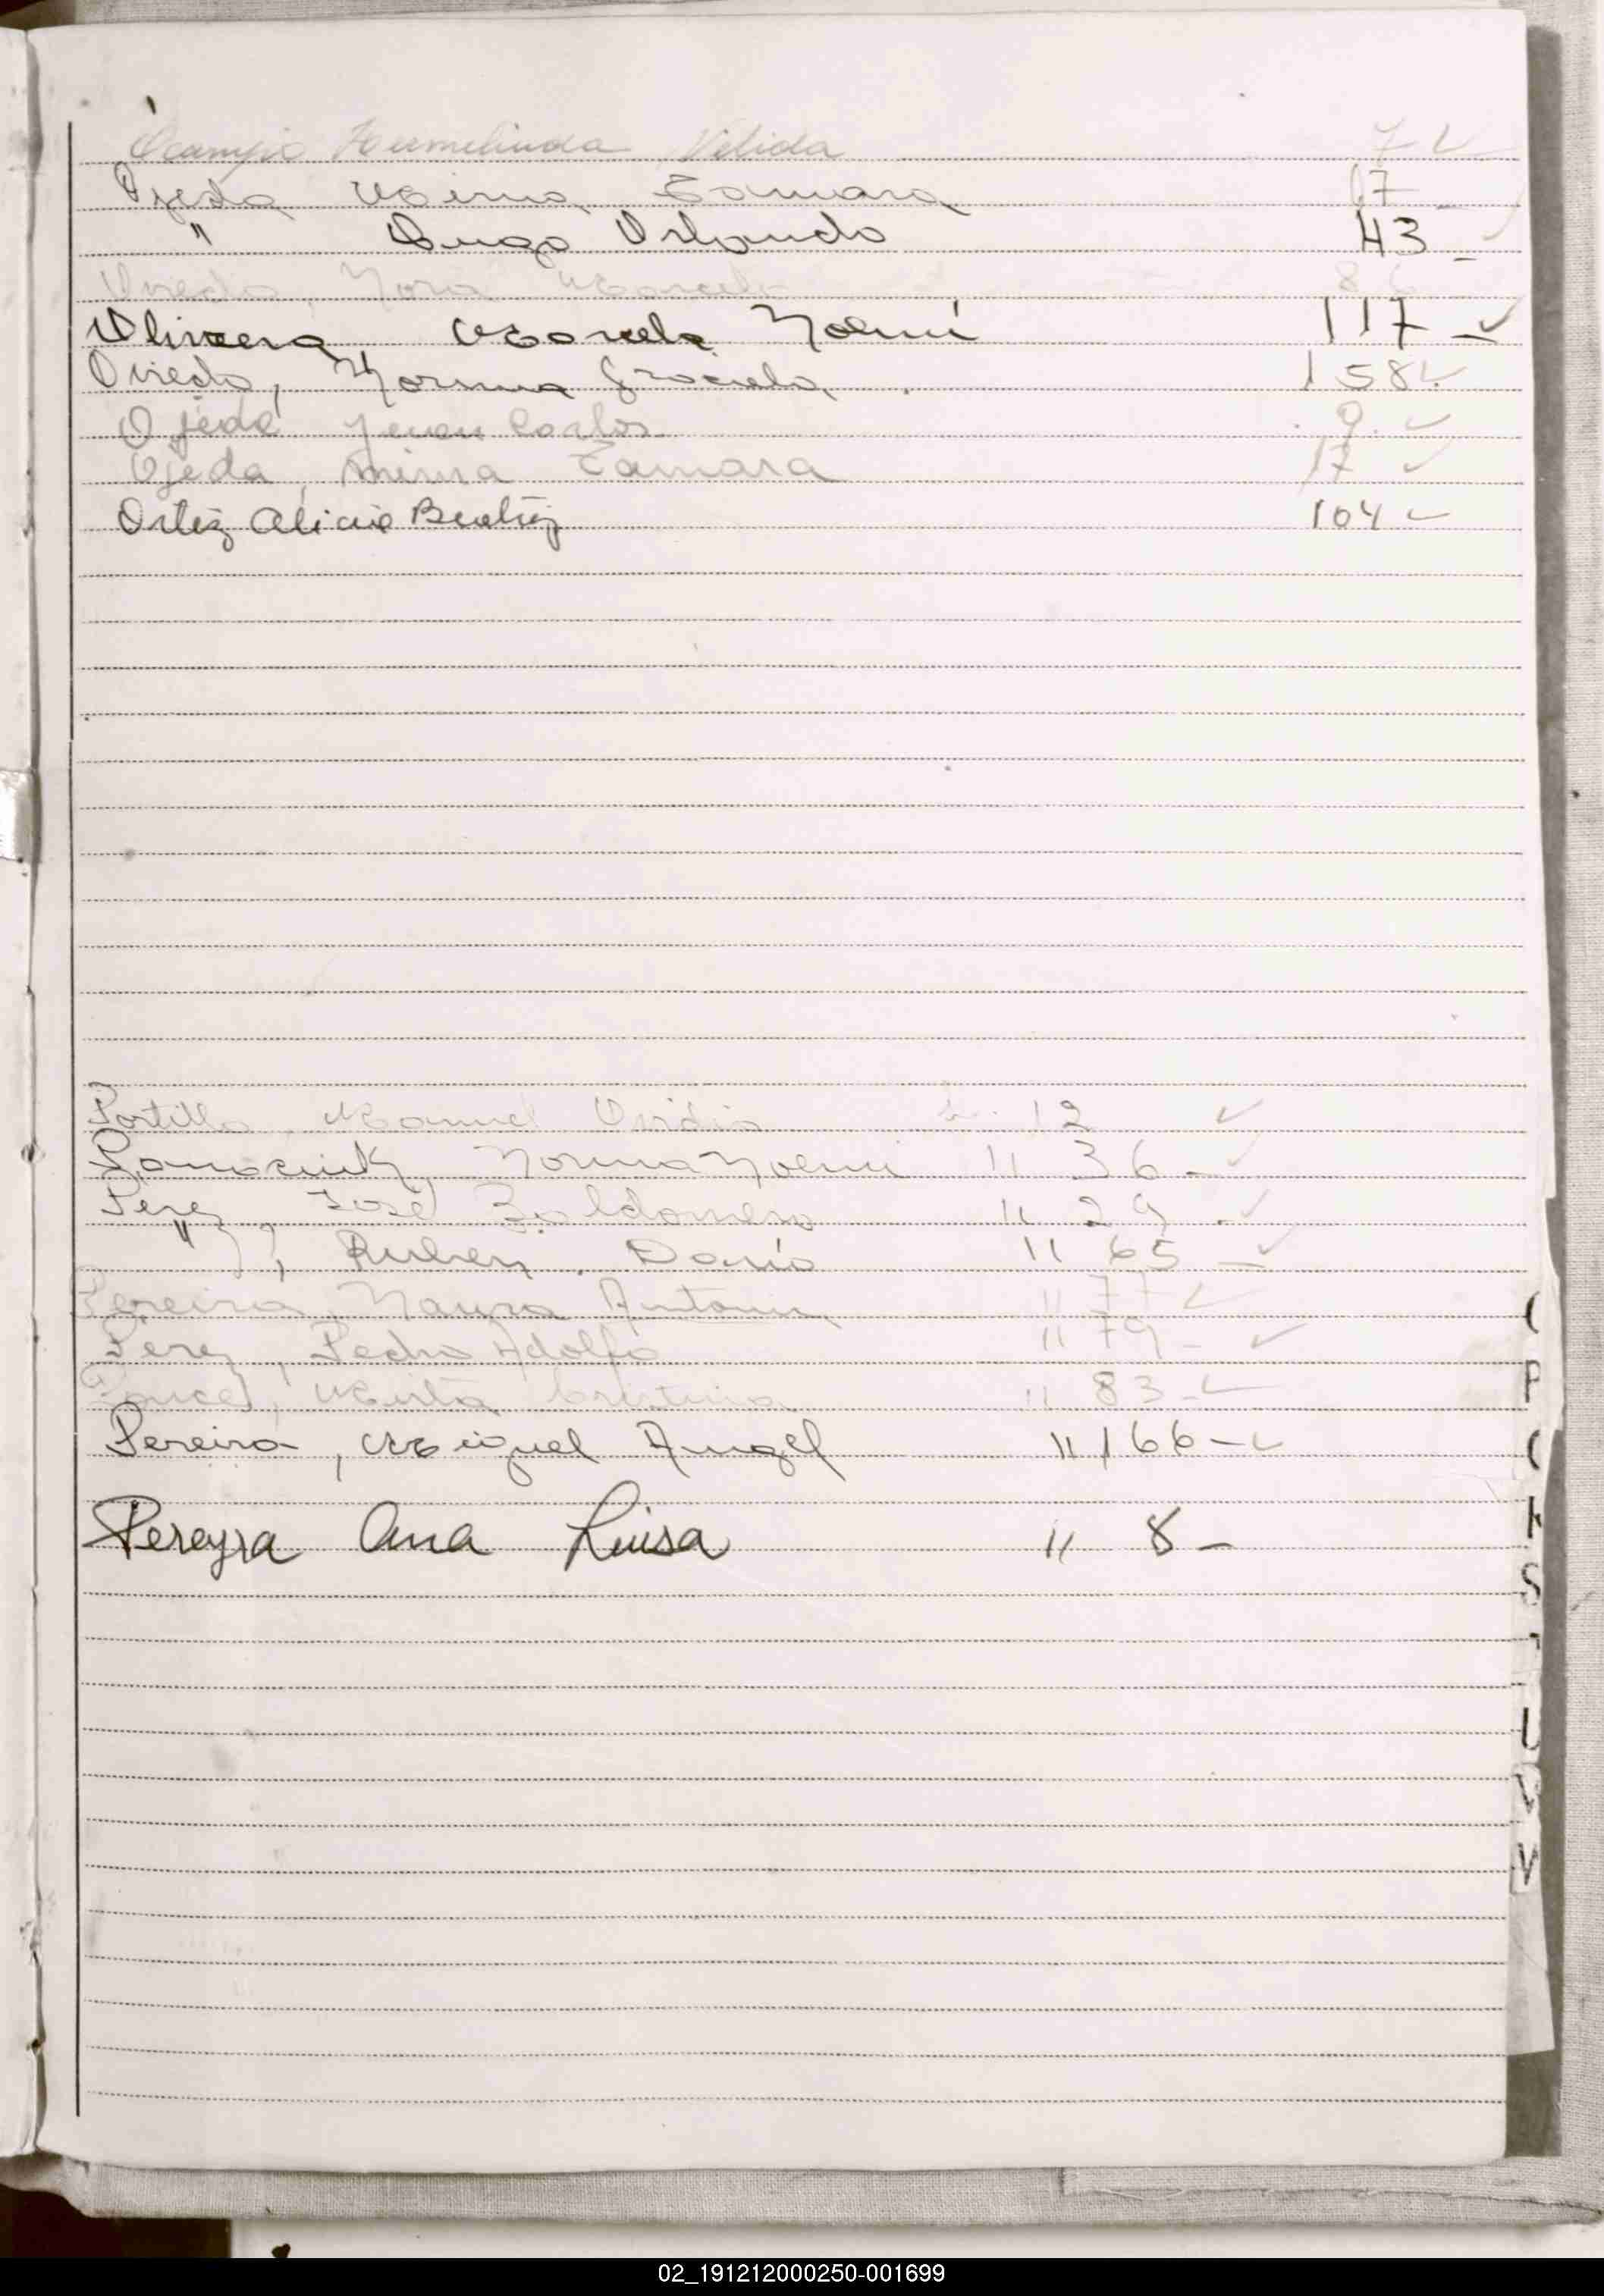 Ocampo Hermelinda Nélida 7 ✓
Ojeda Mirna Tamara 17 -
" Hugo Orlando 43 -
Oviedo, Nora Marcela 86
Olivera Marcela Noemí 117 - ✓
Oviedo, Norma Graciela 158 ✓
Ojeda Juan Carlos 9. ✓
Ojeda, Mirna Tamara 17 ✓
Ortiz Alicia Beatriz 104 ✓
Portillo, Manuel Ovidio 12 ✓
Norma Noemi " 36 - ✓
Perez, José Baldomero " 29 - ✓
" , Ruben Darío " 65 - ✓
Pereira, " 77 ✓
Perez, Pedro Adolfo " 79 - ✓
Ponce, Mirta Cristina " 83 - ✓
Pereira, Miguel Angel " 166 - ✓
Pereyra Ana Luisa " 8 -
P
S
U
V
02_191212000250-001699